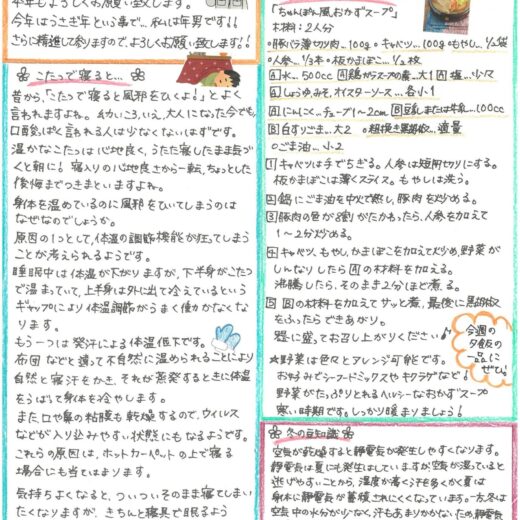 本年もよろしくお願い致します。
今年はうさぎ年という事で…私は年男です!!
さらに精進して参りますので、よろしくお願い致します!!
こたつで寝ると…
昔から、「こたつで寝ると風邪をひくよ!」とよく
言われますよね。幼いころ、いえ、大人になった今でも、
口酸っぱく言われる人は少なくないはずです。
温かなこたつは心地良く、うたた寝したまま気づ
くと朝に! 寝入りの心地良さから一転、ちょっとした
後悔までつきまといますよね。
身体を温めているのに風邪をひいてしまうのは
なぜなのでしょうか。
原因の1つとして、体温の調節機能が狂ってしまう
ことが考えられるようです。
睡眠中は体温が下がりますが、下半身がこたつ
で温まっていて、上半身は外に出て冷えているという
ギャップにより体温調節がうまく働かなくな
ります。
もう一つは発汗による体温低下です。
布団などと違って不自然に温められることにより
自然と寝汗をかき、それが蒸発するときに体温
をうばって身体を冷やします。
また、口や鼻の粘膜も乾燥するので、ウイルス
などが入り込みやすい状態にもなるようです。
これらの原因は、ホットカーペットの上で寝る
場合にも当てはまります。
気持ちよくなると、ついついそのまま寝てしまい
たくなりますが、きちんと寝具で眠るよう
「ちゃんぽん風おかずスープ」
材料:2人分
○豚バラ薄切り肉…100g ○キャベツ…100g ○もやし…1/2袋
○人参…1/3本 ○板かまぼこ…1/2枚
A水…500cc A鶏ガラスープの素…大1 A塩…少々
Aしょうゆ、みそ、オイスターソース…各小1
Aにんにく…チューブ1~2cm B豆乳または牛乳…100cc
B白すりごま…大2 ○粗挽き黒胡椒…適量
○ごま油…小2
1 キャベツは手でちぎる。人参は短冊切りにする。
板かまぼこは薄くスライス。もやしは洗う。
2 鍋にごま油を中火で熱し、豚肉を炒める。
3 豚肉の色が8割がたかわったら、人参を加えて
1~2分炒める。
4 キャベツ、もやし、かまぼこを加えて炒め、野菜が
しんなりしたらAの材料を加える。
沸騰したら、そのまま2分ほど煮る。
5 Bの材料を加えてサッと煮、最後に黒胡椒
をふったらできあがり。
器に盛ってお召し上がりください♪
今週の
夕食の
一品に
ぜひ!
★野菜は色々とアレンジ可能です。
お好みでシーフードミックスやキクラゲなど!
野菜がたっぷりとれるヘルシーなおかずスープ
寒い時期です。しっかり暖まりましょう!
冬の豆知識
空気が乾燥すると静電気が発生しやすくなります。
静電気は夏にも発生はしていますが空気が湿っていると
逃げやすいことから、湿度が高く汗を多くかく夏は
身体に静電気が蓄積されにくくなっています。一方冬は
空中の水分が少なく、汗もあまりかかないため、静電気